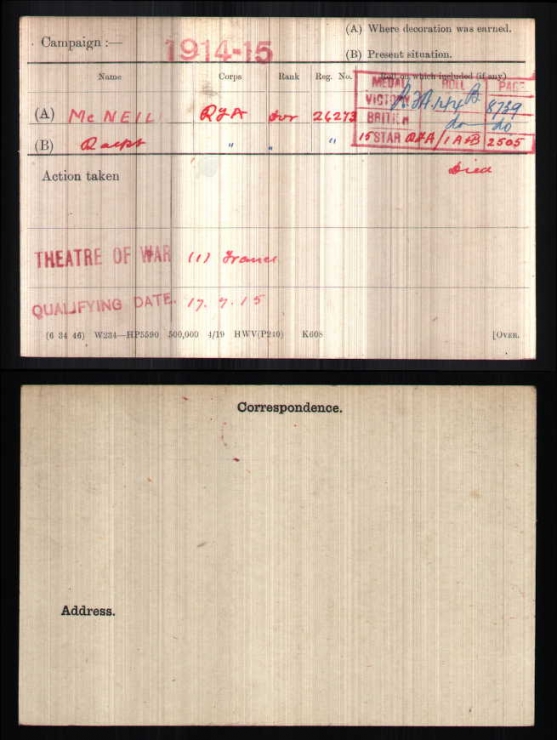 (A) Where decoration was earned.
Campaign :— 1914-15
(B) Present situation.
Name Corps Rank Reg. No. Roll on which included (if any)
MEDAL ROLL PAGE
(A) McNEIL RFA Dvr 26273
VICTORY 8739
BRITISH do do
(B) Ralph " " "
15 STAR RFA/1A&B 2505
Action taken
Died
THEATRE OF WAR (1) France
QUALIFYING DATE. 17.7.15
(6 34 46) W234—HP5590 500,000 4/19 HWV(P240) K608 [OVER.
Correspondence.
Address.